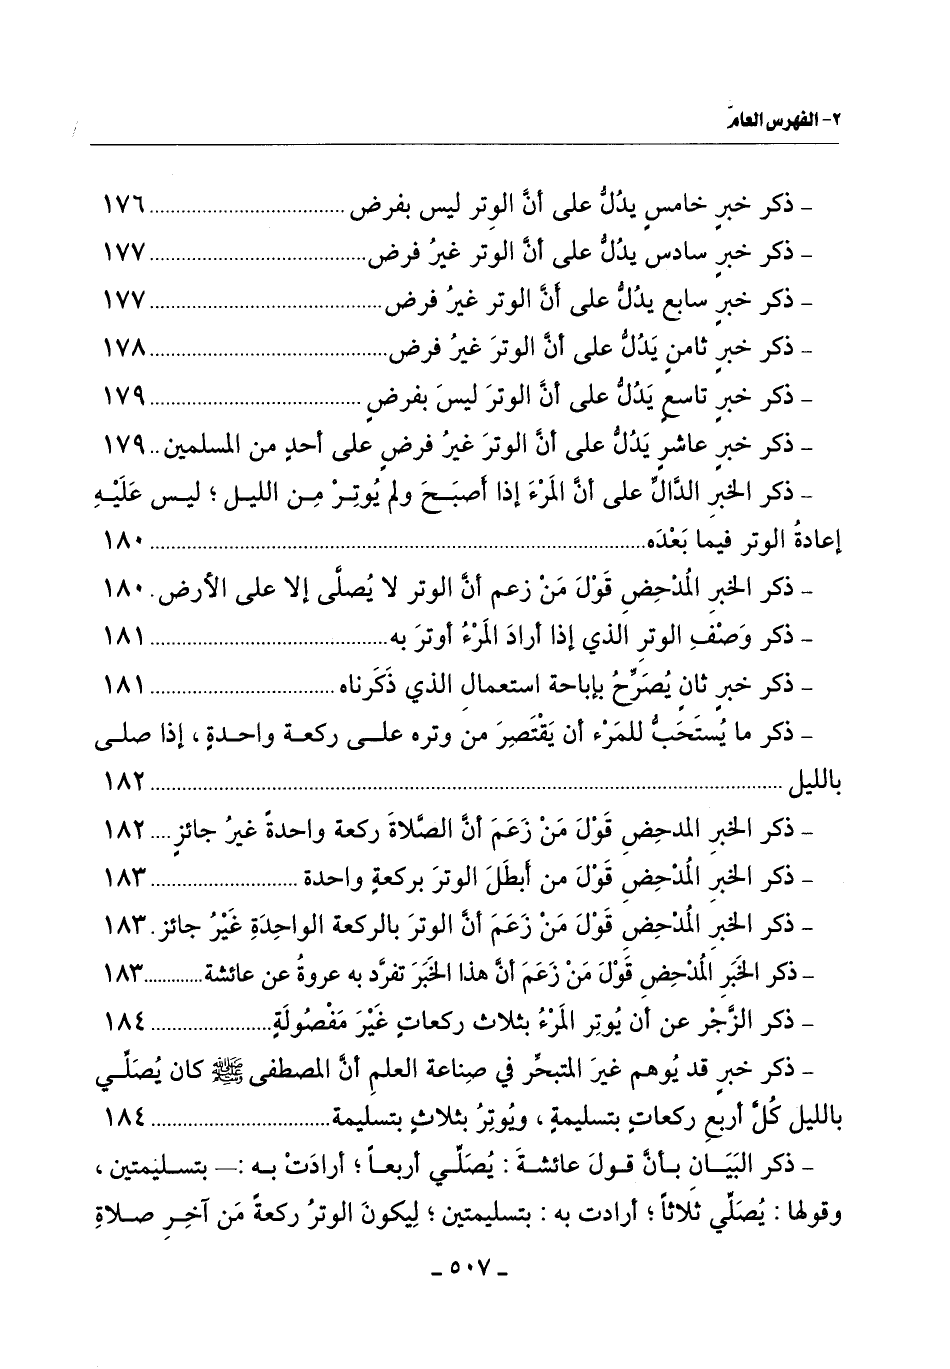 ٢- الفهرس العامّ
– ذكر خبرٍ خامسٍ يدُلُّ على أنَّ الوتر ليس بفرض ................................... ١٧٦
– ذكر خبرٍ سادس يدُلُّ على أنَّ الوتر غيرُ فرض....................................... ١٧٧
– ذكر خبرٍ سابع يدُلُّ على أَنَّ الوتر غيرُ فرض.......................................... ١٧٧
– ذكر خبرٍ ثامنٍ يَدُلُّ على أنَّ الوترَ غيرُ فرض.......................................... ١٧٨
– ذكر خبرٍ تاسعٍ يَدُلُّ على أنَّ الوترَ ليسَ بفرضٍ ...................................... ١٧٩
– ذكر خبرٍ عاشرٍ يَدُلُّ على أنَّ الوترَ غيرُ فرضٍ على أحدٍ من المسلمين.. ١٧٩
– ذكر الخبرِ الدَّالِّ على أنَّ المَرْءَ إذا أصبَحَ ولم يُوتِرْ مِن الليل ؛ ليس عَلَيْهِ
إعادةُ الوتر فيما بَعْدَه......................................................................................... ١٨٠
– ذكر الخبرِ المُدْحِضِ قَوْلَ مَنْ زعم أنَّ الوتر لا يُصلَّى إلا على الأرض. ١٨٠
– ذكر وَصْفِ الوتر الذي إذا أرادَ المَرْءُ أوترَ به.......................................... ١٨١
– ذكر خبرٍ ثانٍ يُصَرِّحُ بإباحة استعمال الذي ذَكَرناه ................................. ١٨١
– ذكر ما يُستَحَبُّ للمَرْء أن يَقْتَصِرَ من وتره على ركعة واحدةٍ ، إذا صلى
بالليل .................................................................................................................. ١٨٢
– ذكر الخبرِ المدحِضِ قَوْلَ مَنْ زَعَمَ أنَّ الصَّلاةَ ركعة واحدةً غيرُ جائزٍ.... ١٨٢
– ذكر الخبرِ المُدْحِضِ قَوْلَ من أَبطَلَ الوترَ بركعةٍ واحدة ........................... ١٨٣
– ذكر الخبرِ المُدْحِضِ قَوْلَ مَنْ زَعَمَ أنَّ الوترَ بالركعة الواحِدَةِ غَيْرُ جائز. ١٨٣
– ذكر الخَبَرِ المُدْحِضِ قَوْلَ مَنْ زَعَمَ أنَّ هذا الخَبَرَ تفرَّد به عروةُ عن عائشة............ ١٨٣
– ذكر الزَّجْر عن أن يُوتِر المَرْءُ بثلاث ركعاتٍ غَيْرَ مَفْصُولَةٍ...................... ١٨٤
– ذكر خبرٍ قد يُوهم غيرَ المتبحِّر في صِناعة العلم أنَّ المصطفى ﷺ كان يُصَلِّي
بالليل كُلَّ أربعِ ركعاتٍ بتسليمةٍ ، ويُوتِرُ بثلاثٍ بتسليمة............................... ١٨٤
– ذكر البَيَانِ بأنَّ قولَ عائشةَ : يُصَلِّي أربعاً ؛ أرادَتْ به :– بتسليمتين ،
وقولها : يُصَلِّي ثلاثاً ؛ أرادت به : بتسليمتين ؛ لِيكونَ الوترُ ركعةً مَن آخِرِ صلاةِ
– ٥٠٧ –